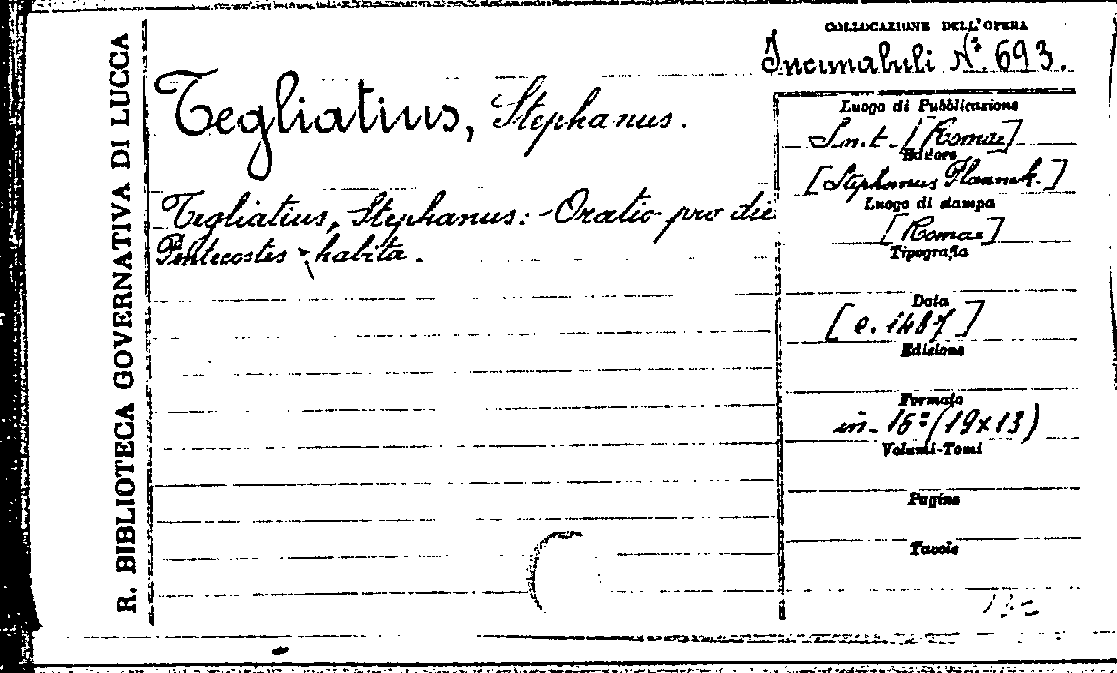 R. BIBLIOTECA GOVERNATIVA DI LUCCA
COLLOCAZIONE DELL'OPERA
Incunabuli N.º 693.
Tegliatius, Stephanus.
Tegliatius, Stephanus: - Oratio pro die
Pentecostes habita.
Luogo di Pubblicazione
S.n.t. [Romae]
Editore
[Stephanus Plannck.]
Luogo di stampa
[Romae]
Tipografia
Data
[c. 1487]
Edizione
Formato
in-16º (19x13)
Volumi-Tomi
Pagine
Tavole